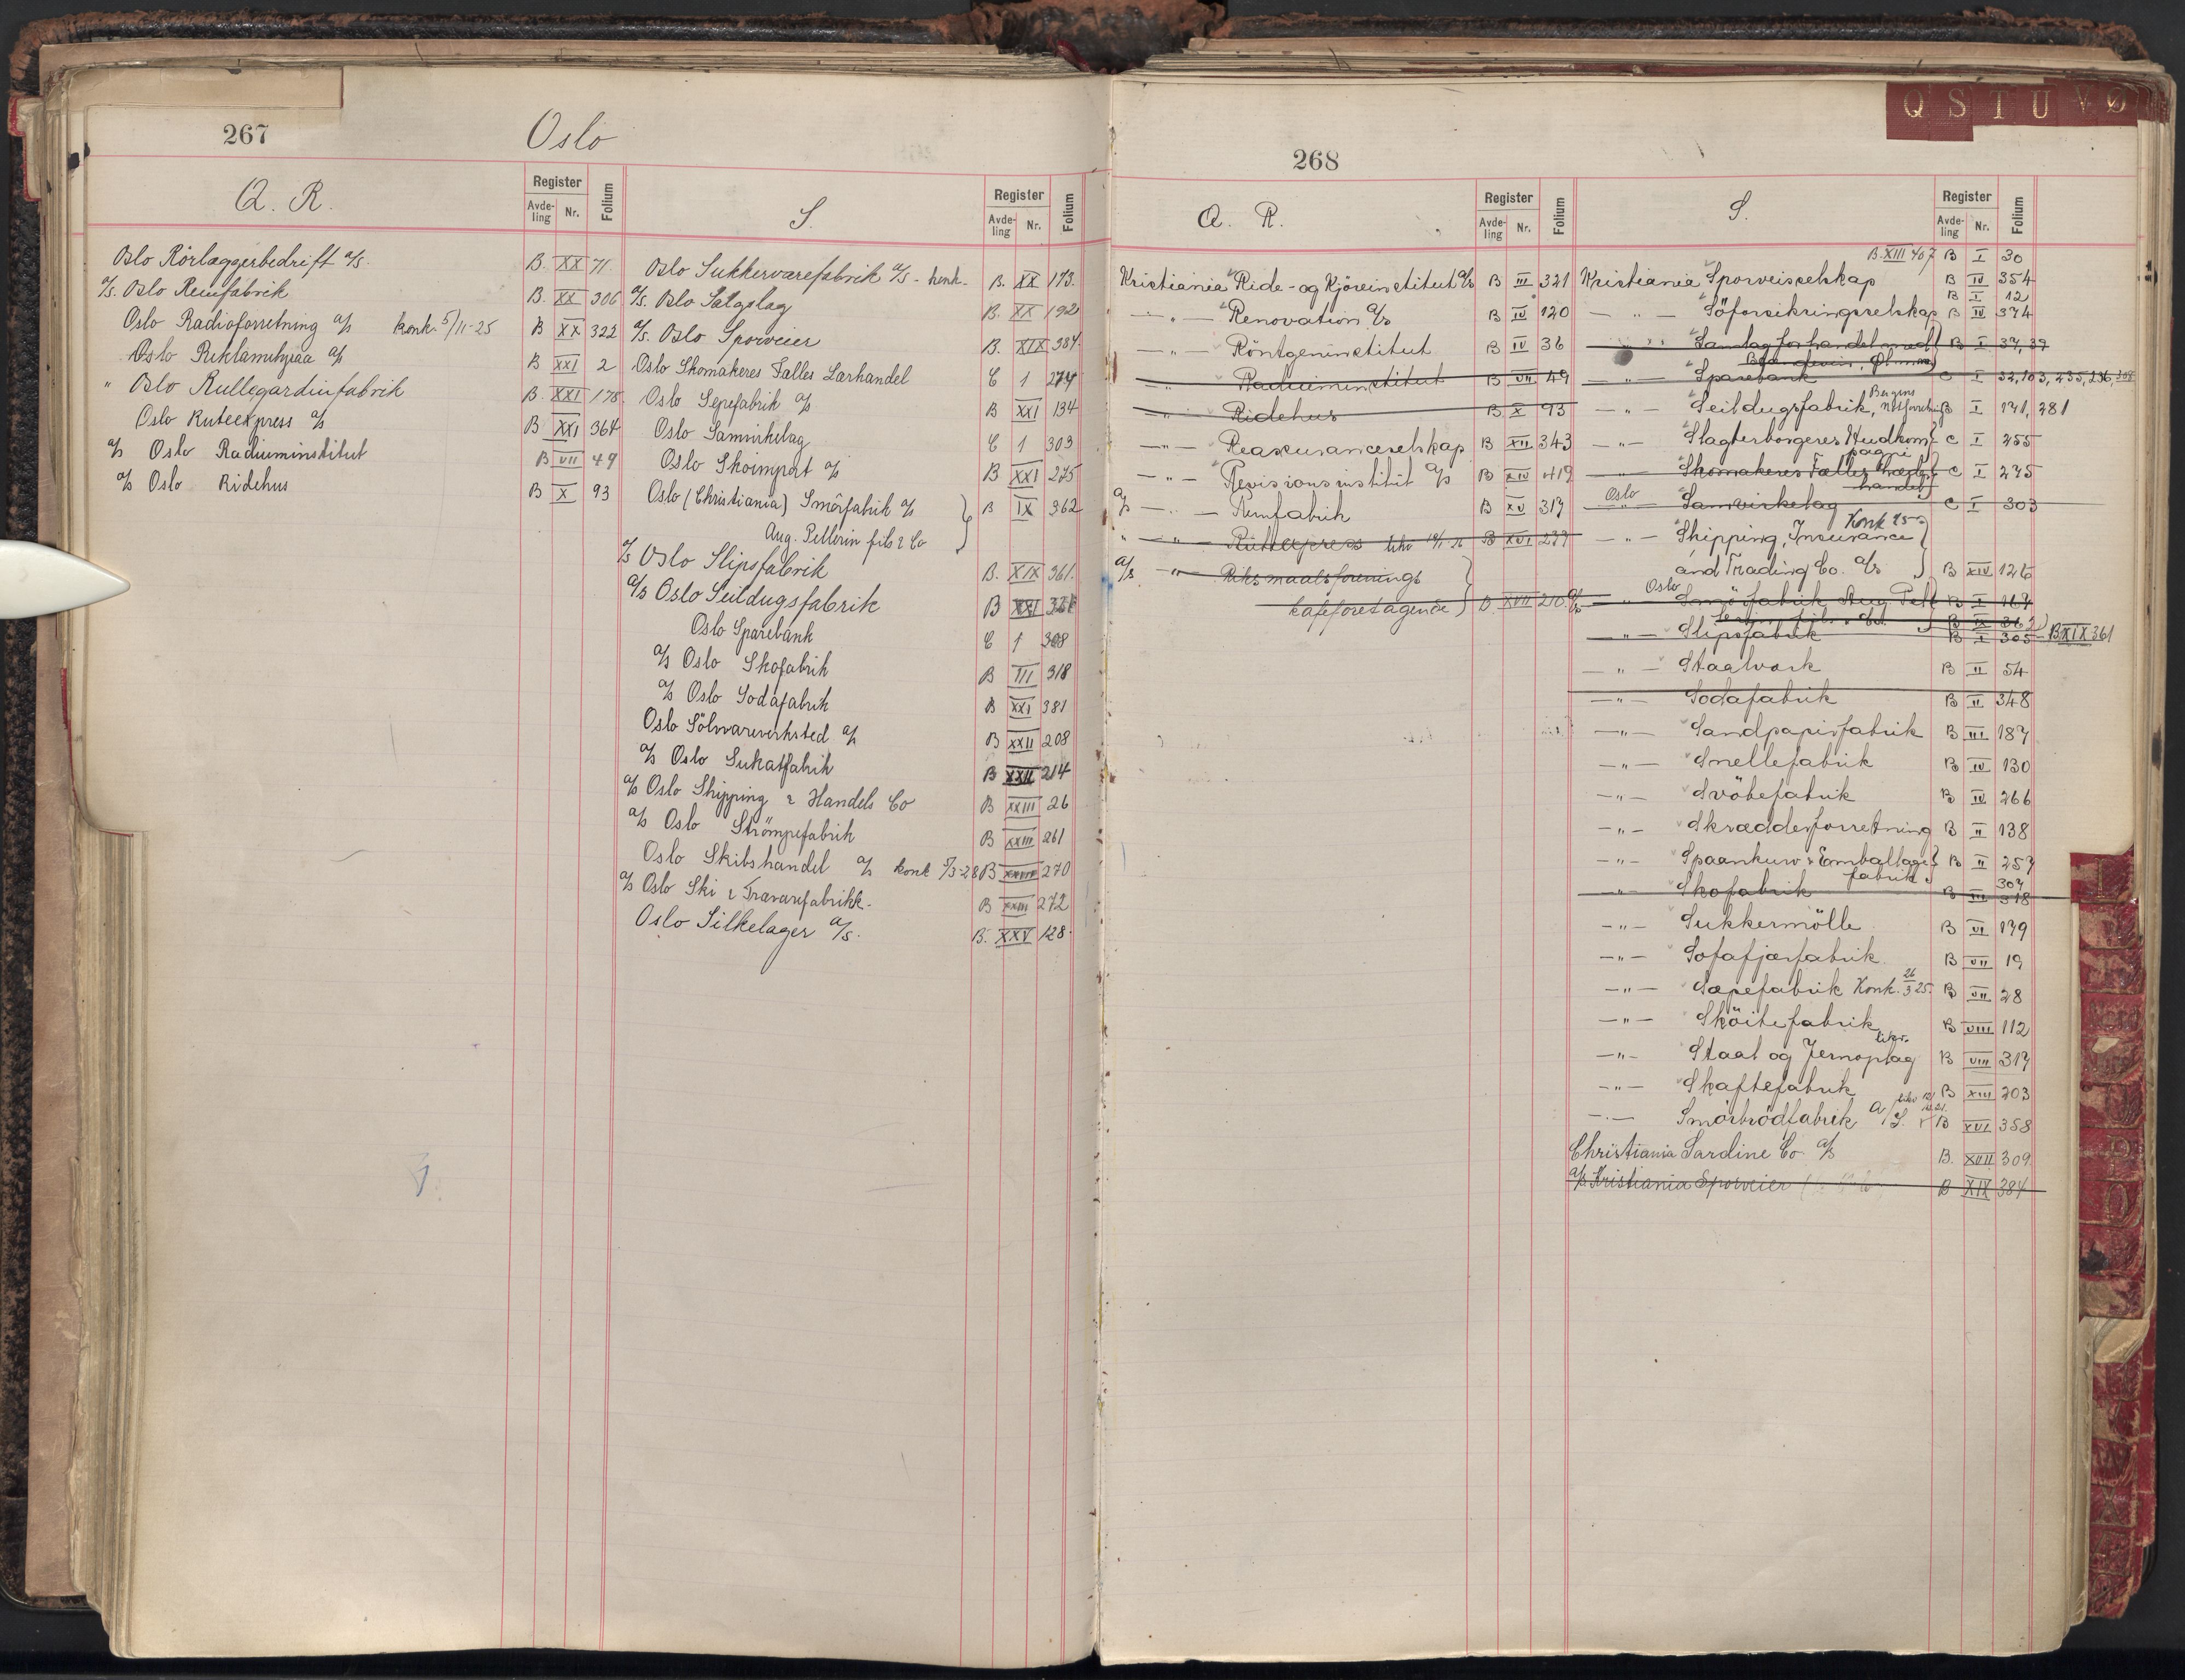 267
Oslo
Q. R.
Register
Avde-ling Nr. Folium
Oslo Rörlæggerbedrift a/s. B. XX 71
a/s. Oslo Remfabrik B. XX 306
Oslo Radioforretning a/s konk. 5/11-25 B XX 322
Oslo Reklamebyraa a/s B XXI 2
" Oslo Rullegardinfabrik B. XXI 178
Oslo Ruteexpress a/s B XXI 364
a/s Oslo Radiuminstitut B VII 49
a/s Oslo Ridehus B X 93
S.
Register
Avde-ling Nr. Folium
Oslo Sukkervarefabrik a/s - konk. B. XX 173.
a/s. Oslo Salgslag B. XX 192
a/s. Oslo Sporveier B. XIX 384.
Oslo Skomakeres Fælles Lærhandel C 1 274
Oslo Sepefabrik a/s B XXI 134
Oslo Samvirkelag C 1 303
Oslo Skoimport a/s B XXI 275
Oslo (Christiania) Smörfabrik a/s } B IX 362
Aug. Pellerin fils & Co
a/s Oslo Slipsfabrik B. XIX 361.
a/s Oslo Seildugsfabrik B XXI
Oslo Sparebank C 1 308
a/s Oslo Skofabrik B III 318
a/s Oslo Sodafabrik B XXI 381
Oslo Sölvvareverksted a/s B XXII 208
a/s Oslo Sukatfabrik B XXII 214
a/s Oslo Shipping & Handels Co B XXIII 26
a/s Oslo Strömpefabrik B XXIII 261
Oslo Skibshandel a/s konk 5/3-28 B XXIII 270
a/s Oslo Ski & Trævarefabrikk. B XXIII 272
Oslo Silkelager a/s. B. XXV 128.
268
Q S T U V Ø
Q. R.
Register
Avde-ling Nr. Folium
Kristiania Ride- og Kjöreinstitut a/s B III 321
— " — Renovation a/s B IV 120
— " — Röntgeninstitut B IV 36
— " — Radiuminstitut B VII 49
— " — Ridehus B X 93
— " — Reassuranceselskap B XII 343
— " — Revisionsinstitut a/s B XIV 419
a/s — " — Remfabrik B XV 317
" — " — Rutexpress likv B XVI 279
a/s — " — Riksmaalsforenings }
kaféforetagende } B. XVII 210.
S.
Register
Avde-ling Nr. Folium
B. XIII 407 B I 30
Kristiania Sporveisselskap B IV 354
B I 12
— " — Söforsikringsselskap B IV 374
— " — Samlag for handel med } B I 37, 39
Brændevin, Öl m.m.
— " — Sparebank C I 32, 103, 235, 236, 308
— " — Seildugsfabrik, Bergens Notforretning B I 141, 281
— " — Slagterborgeres Hudkom- } C I 255
pagni
— " — Skomakeres Fælles Læder- } C I 275
handel
Oslo — Samvirkelag C I 303
— " — Shipping, Insurance } Konk 25
and Trading Co. a/s } B XIV 126
a/s — " — Oslo Smörfabrik Aug. Pell- B I 164
lerin fils & Co. B IX 362
— " — Slipsfabrik B I 305 - B XIX 361
— " — Staalvark B II 54
— " — Sodafabrik B II 348
— " — Sandpapirfabrik B III 187
— " — Snellefabrik B IV 130
— " — Svöbefabrik B IV 266
— " — Skrædderforretning B II 138
— " — Spaankurv & Emballage- } B II 257
fabrik
— " — Skofabrik B III 307 318
— " — Sukkermölle B VI 179
— " — Sofafjærfabrik B VII 19
— " — Sæpefabrik Konk. 26/3 25. B VII 28
— " — Sköitefabrik B VIII 112
— " — Staal og Jernoplag likv. B VIII 317
— " — Skaftefabrik B XIII 203
— " — Smörbrödfabrik A/S. likv B XVI 358
Christiania Sardine Co. a/s B. XVII 309
a/s Kristiania Sporveier B XIX 384